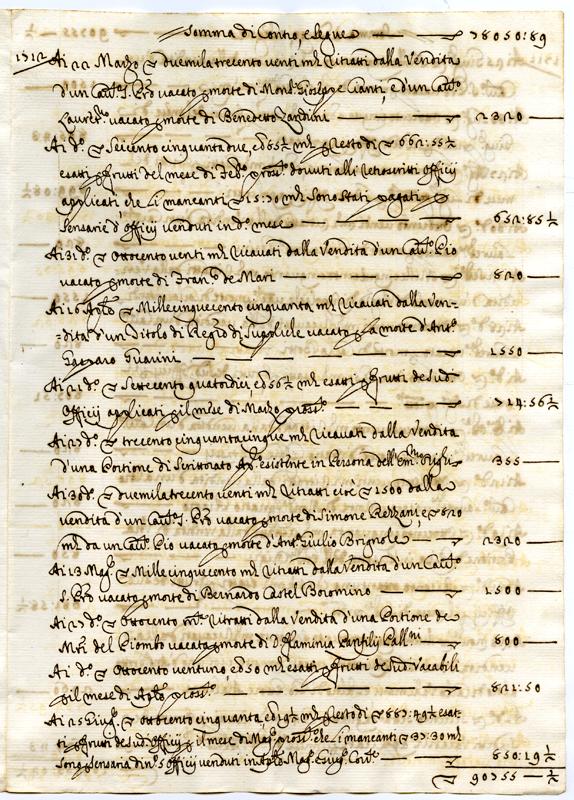 Somma di Contro, e segue — 78050:89
1712 Ai 22 Marzo ▽ duemila trecento venti mta ritratti dalla Vendita
d'un Cavto S. Pro vacato p morte di Mons. Gioseppe Cianti, e d'un Cavto
Lauretno vacato p morte di Benedetto Zandini — 2320 —
Ai do ▽ Seicento cinquanta due, e d 85½ mta p resto di ▽ 662:55½
esatti p frutti del mese di Febo prossto dovuti alli retroscritti Offitij
applicati che li mancanti ▽ 15:70 mta Sono Stati pagati p
Senserie d'Offitij venduti in do mese — 652:85½
Ai 31 do ▽ Ottocento venti mta ricavati dalla Vendita d'un Cavto Pio
vacato p morte di Franco de Mari — 820 —
Ai 16 Aple ▽ Mille cinquecento cinquanta mta ricavati dalla Ven-
dita d'un Titolo di Regro di Suppliche vacato p la morte d'Anto
Guarini — 1550 —
Ai 21 do ▽ Settecento quatordici, e d 56½ mta esatti p frutti de Sud.
Offitij applicati p il mese di Marzo prossto — 714:56½
Ai 27 do ▽ trecento cinquanta cinque mta ricavati dalla Vendita
d'una Portione di Scrittorato Apco esistente in Persona dell'Emmo
355 —
Ai 30 do ▽ duemila trecento venti mta ritratti cioè ▽ 1500 dalla
vendita d'un Cavto S. Pro vacato p morte di Simone e ▽ 820
mta da un Cavto Pio vacato p morte d'Anto Giulio Brignole — 2320 —
Ai 13 Mago ▽ Mille cinquecento mta ritratti dalla Vendita d'un Cavto
S. Pro vacato p morte di Bernardo Castel Boromino — 1500 —
Ai 27 do ▽ Ottocento mta ritratti dalla Vendita d'una Portione de
Mti del Piombo vacata p morte di D. Flaminia Panfilij Pallni — 800 —
Ai do ▽ Ottocento ventuno, e d 50 mta esatti p frutti de Sud. Vacabili
p il mese di Aple prossto — 821:50
Ai 25 Giugo ▽ ottocento cinquanta, e d 19½ mta p resto di ▽ 887:49½ esat-
ti p frutti de Sud. Offitij p il mese di Mago prossto che li mancanti ▽ 37:30 mta
Sono p Senseria di no 5 Offitij venduti in Aple Mago, e Giugo Corte — 850:19½
▽ 90755 — ½